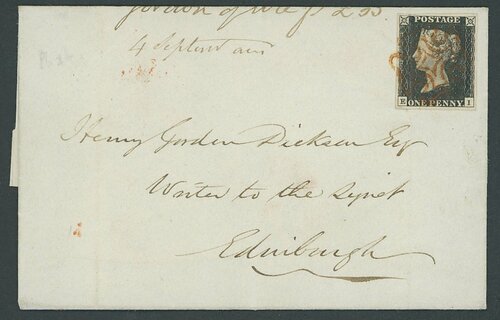 4 Septent
POSTAGE
E ONE PENNY I
Henry Gordon Dickson Esq
Writer to the Signet
Edinburgh